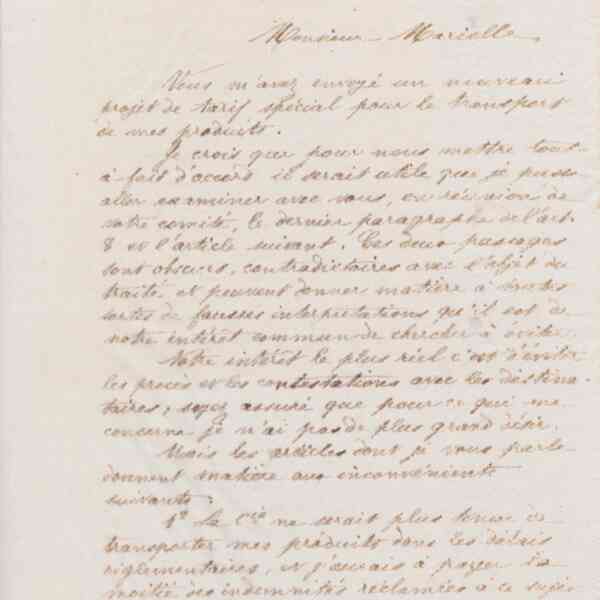 Monsieur Marielle
Vous m'avez envoyé un nouveau
projet de tarif spécial pour le transport
de mes produits.
Je crois que pour nous mettre tout-
à fait d'accord il serait utile que je puisse
aller examiner avec vous, en réunion de
votre comité, le dernier paragraphe de l'art.
8 et l'article suivant. Ces deux passages
sont obscurs, contradictoires avec l'objet du
traité et peuvent donner matière à toutes
sortes de fausses interprétations qu'il est de
notre intérêt commun de chercher à éviter.
Votre intérêt le plus réel c'est d'éviter
les procès et les contestations avec les destina-
taires; soyez assuré que pour ce qui me
concerne je n'ai pas de plus grand désir.
Mais les articles dont je vous parle
donnent matière aux inconvénients
suivants:
1º La Cie ne serait plus tenue de
transporter mes produits dans les délais
réglementaires, et j'aurais à payer la
moitié des indemnités réclamées à ce sujet